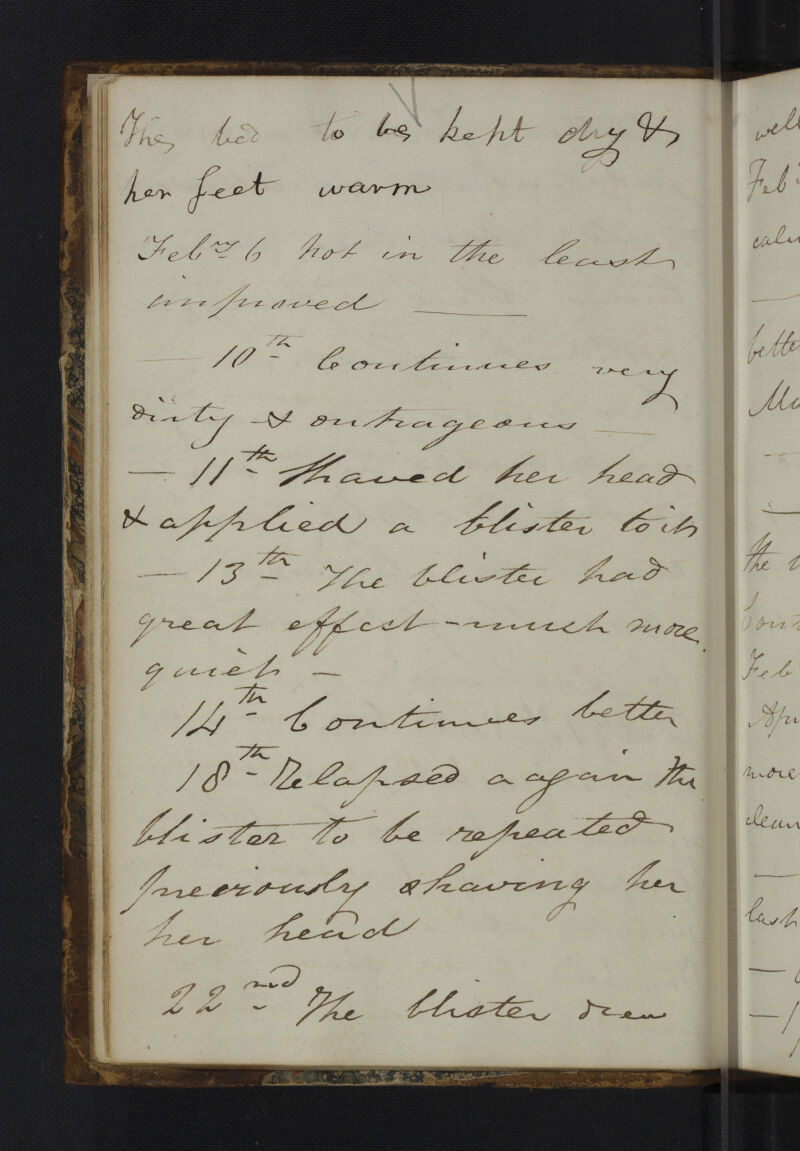 The bed to be kept dry &
her feet warm
Febry 6 not in the least
improved —
— 10th Continues very
dirty & outrageous —
— 11th Shaved her head
& applied a blister to it
— 13th The blister had
great effect - much more
quiet —
14th Continues better
18th Relapsed a again the
blister to be repeated
previously shaving her
her head
22nd The blister drew
well
Feb
calm
better
Ma
the
Cont
Feb
Apr
more
clean
last